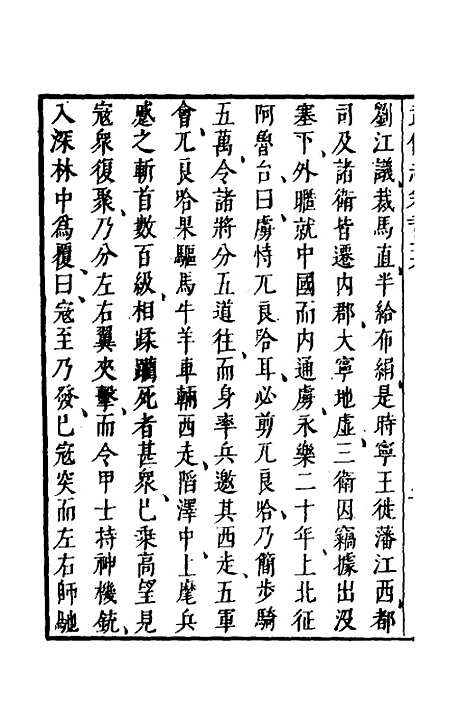 劉江議裁馬直半給布絹是時寧王徙藩江西都
司及諸衛皆遷内郡大寧地虛三衛因竊據出沒
塞下外臣就中國而内通虜永樂二十年上北征
阿魯台曰虜恃兀良哈耳必剪兀良哈乃簡步騎
五萬令諸將分五道往而身率兵邀其西走五軍
會兀良哈果驅馬牛羊車輛西走陷澤中上麾兵
蹙之斬首數百級相蹂躪死者甚衆已乘高望見
寇衆復聚乃分左右翼夾擊而令甲士持神機銃
入深林中爲覆曰寇至乃發已寇突而左右師馳